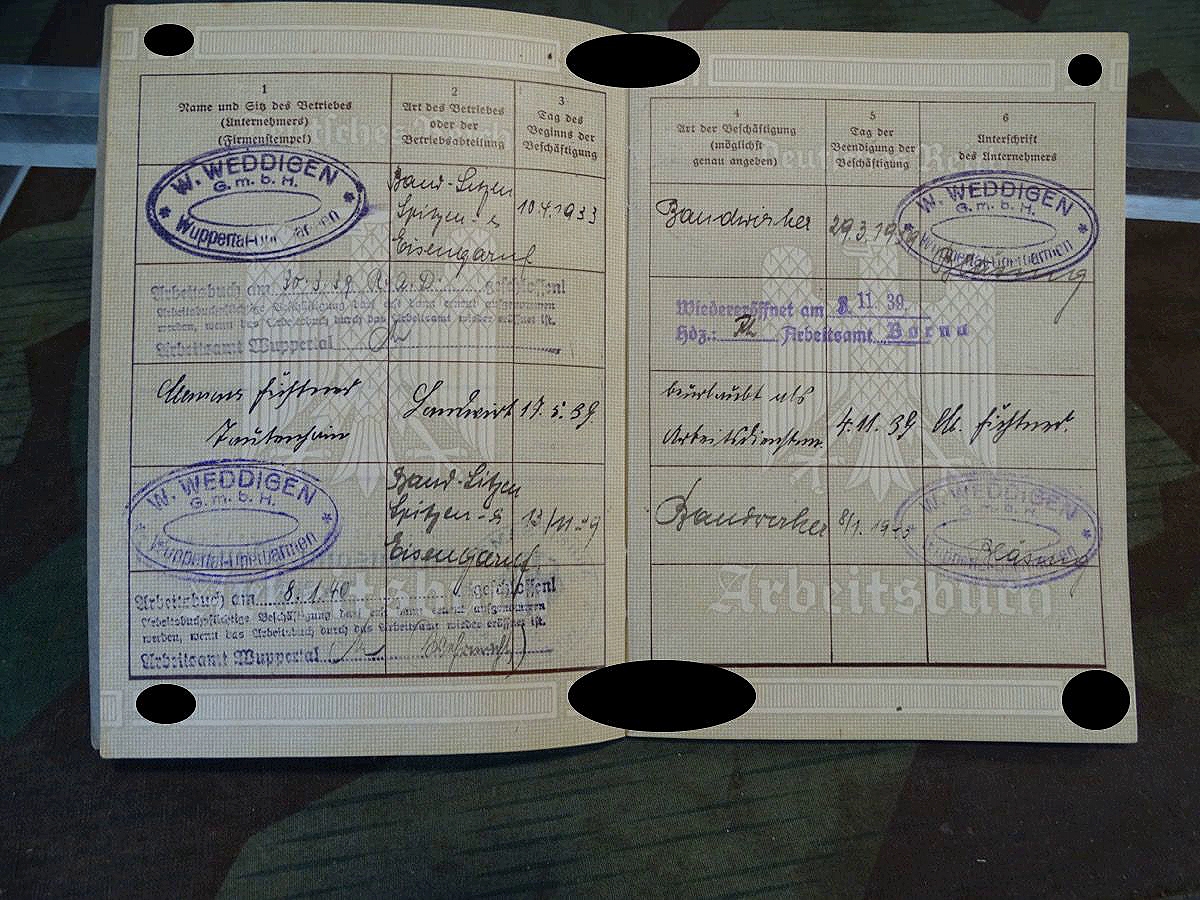 1
Name und Sitz des Betriebes
(Unternehmers)
(Firmenstempel)
2
Art des Betriebes
oder der
Betriebsabteilung
3
Tag des
Beginns der
Beschäftigung
W. WEDDIGEN
G.m.b.H.
Wuppertal-
Band-Litzen
Spitzen-
Eisengarnf
10.4.1933
Arbeitsbuch am 30.3.39 R.A.D. geschlossen!
werden, wenn das Arbeitsbuch durch das Arbeitsamt wieder eröffnet ist.
Arbeitsamt Wuppertal
Fichtner
Tautenhain
Landwirt
17.5.39.
W. WEDDIGEN
G.m.b.H.
Wuppertal-Oberbarmen
Band-Litzen
Spitzen-
Eisengarnf.
Arbeitsbuch am 8.1.40 geschlossen!
Arbeitsbuchpflichtige Beschäftigung darf erst dann erneut aufgenommen
werden, wenn das Arbeitsbuch durch das Arbeitsamt wieder eröffnet ist.
Arbeitsamt Wuppertal
4
Art der Beschäftigung
(möglichst
genau angeben)
5
Tag der
Beendigung der
Beschäftigung
6
Unterschrift
des Unternehmers
Bandwirker
29.3.19
W. WEDDIGEN
G.m.b.H.
Wuppertal-Oberbarmen
Wiedereröffnet am 11 39
Hdz.: Arbeitsamt Borna
beurlaubt als
Arbeitsdienstm.
4.11.39
Fichtner.
Bandwirker
8/1.19
W. WEDDIGEN
G.m.b.H.
Bläsing
Arbeitsbuch